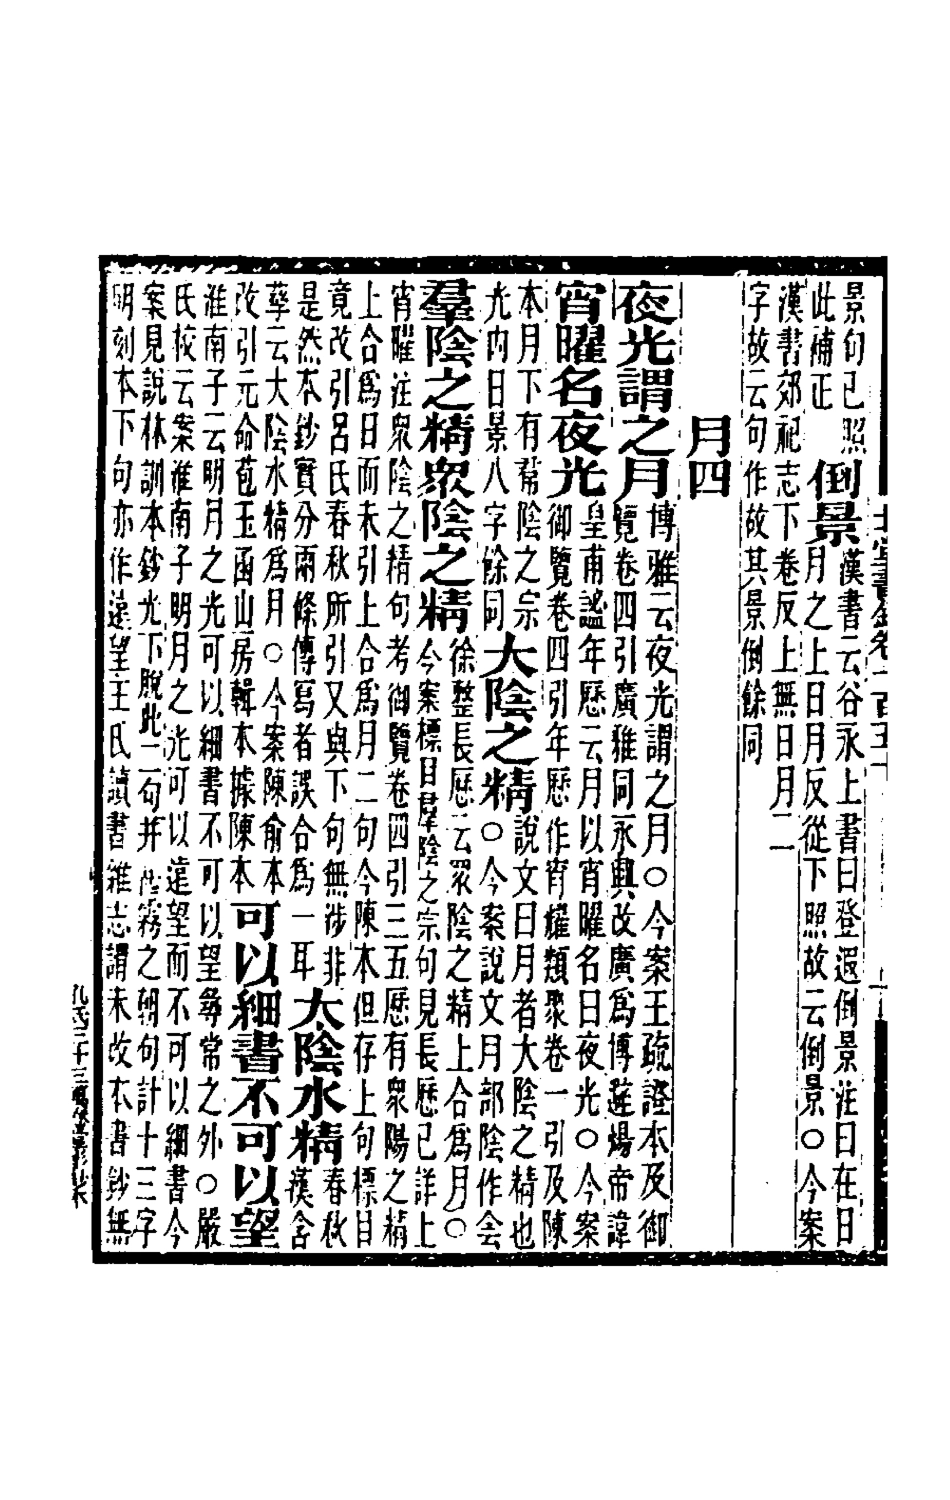 北堂書鈔卷一百五十
景句已照
此補正
倒景
漢書云谷永上書曰登遐倒景注曰在日
月之上日月反從下照故云倒景○今案
漢書郊祀志下卷反上無日月二
字故云句作故其景倒餘同
月四
夜光謂之月
博雅云夜光謂之月○今案王疏證本及御
覽卷四引廣雅同永興改廣爲博避煬帝諱
宵曜名夜光
皇甫謐年歷云月以宵曜名曰夜光○今案
御覽卷四引年歷作宵耀類聚卷一引及陳
本月下有羣陰之宗
光內日景八字餘同
大陰之精
說文曰月者大陰之精也
○今案說文月部陰作侌
羣陰之精眾陰之精
徐整長歷云眾陰之精上合爲月○
今案標目羣陰之宗句見長歷已詳上
宵曜注眾陰之精句考御覽卷四引三五歷有衆陽之精
上合爲日而未引上合爲月二句今陳本但存上句標目
竟改引呂氏春秋所引又與下句無涉非
是然本鈔實分兩條傳寫者誤合爲一耳
大陰水精
春秋
漢含
孳云大陰水精爲月○今案陳俞本
改引元命苞玉函山房輯本據陳本
可以細書不可以望
淮南子云明月之光可以細書不可以望尋常之外○嚴
氏校云案淮南子明月之光可以遠望而不可以細書今
案見說林訓本鈔光下脫此二句并霧之朝句計十三字
明刻本下句亦作遠望王氏讀書雜志謂未改本書鈔無
孔氏三十三萬卷堂影鈔本